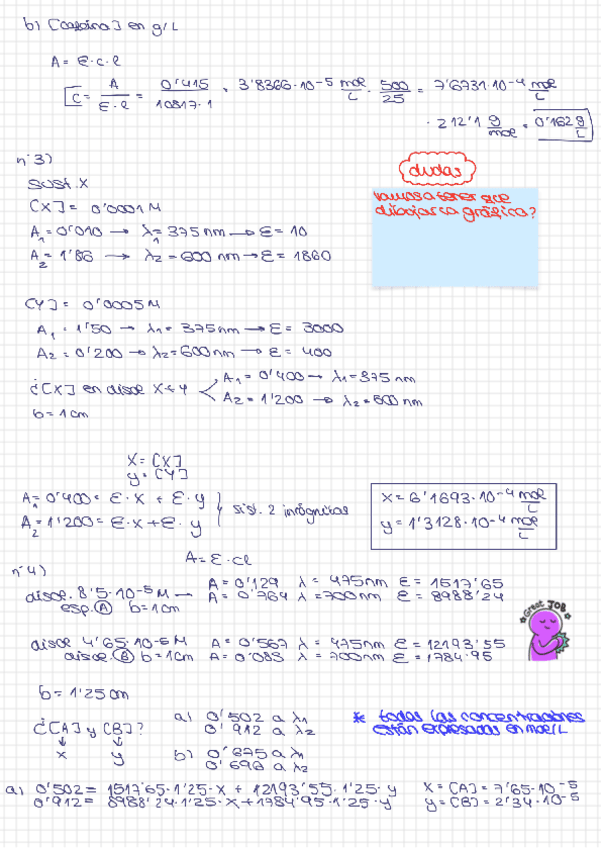 b) [cafeína] en g/L
A = ε·c·l
C = A / ε·l = 0'415 / 10817·1 = 3'8366·10⁻⁵ mol/L · 500/25 = 7'6731·10⁻⁴ mol/L
· 212'1 g/mol = 0'162 g/L
nº3)
dudas
SUST X
vamos a tener que
dibujar la gráfica?
[X] = 0'0001 M
A₁ = 0'010 → λ₁ = 375 nm → ε = 10
A₂ = 1'86 → λ₂ = 600 nm → ε = 1860
[Y] = 0'0005 M
A₁ = 1'50 → λ₁ = 375 nm → ε = 3000
A₂ = 0'200 → λ₂ = 600 nm → ε = 400
¿[X] en disol X+Y
A₁ = 0'400 → λ₁ = 375 nm
A₂ = 1'200 → λ₂ = 600 nm
b = 1 cm
X = [X]
y = [Y]
A₁ = 0'400 = ε·x + ε·y
A₂ = 1'200 = ε·x + ε·y
sist. 2 incógnitas
x = 6'1693·10⁻⁴ mol/L
y = 1'3128·10⁻⁴ mol/L
A = ε·cl
nº4)
disol. 8'5·10⁻⁵ M → A = 0'129 λ = 475 nm ε = 1517'65
esp. A b = 1 cm A = 0'764 λ = 700 nm ε = 8988'24
Great JOB
disol 4'65·10⁻⁵ M A = 0'567 λ = 475 nm ε = 12193'55
disol. B b = 1 cm A = 0'083 λ = 700 nm ε = 1784'95
b = 1'25 cm
¿[A] y [B]?
x y
a) 0'502 a λ₁
0'912 a λ₂
b) 0'675 a λ₁
0'698 a λ₂
* todas las concentraciones
están expresadas en mol/L
a) 0'502 = 1517'65·1'25·x + 12193'55·1'25·y X = [A] = 7'65·10⁻⁵
0'912 = 8988'24·1'25·x + 1784'95·1'25·y y = [B] = 2'34·10⁻⁵